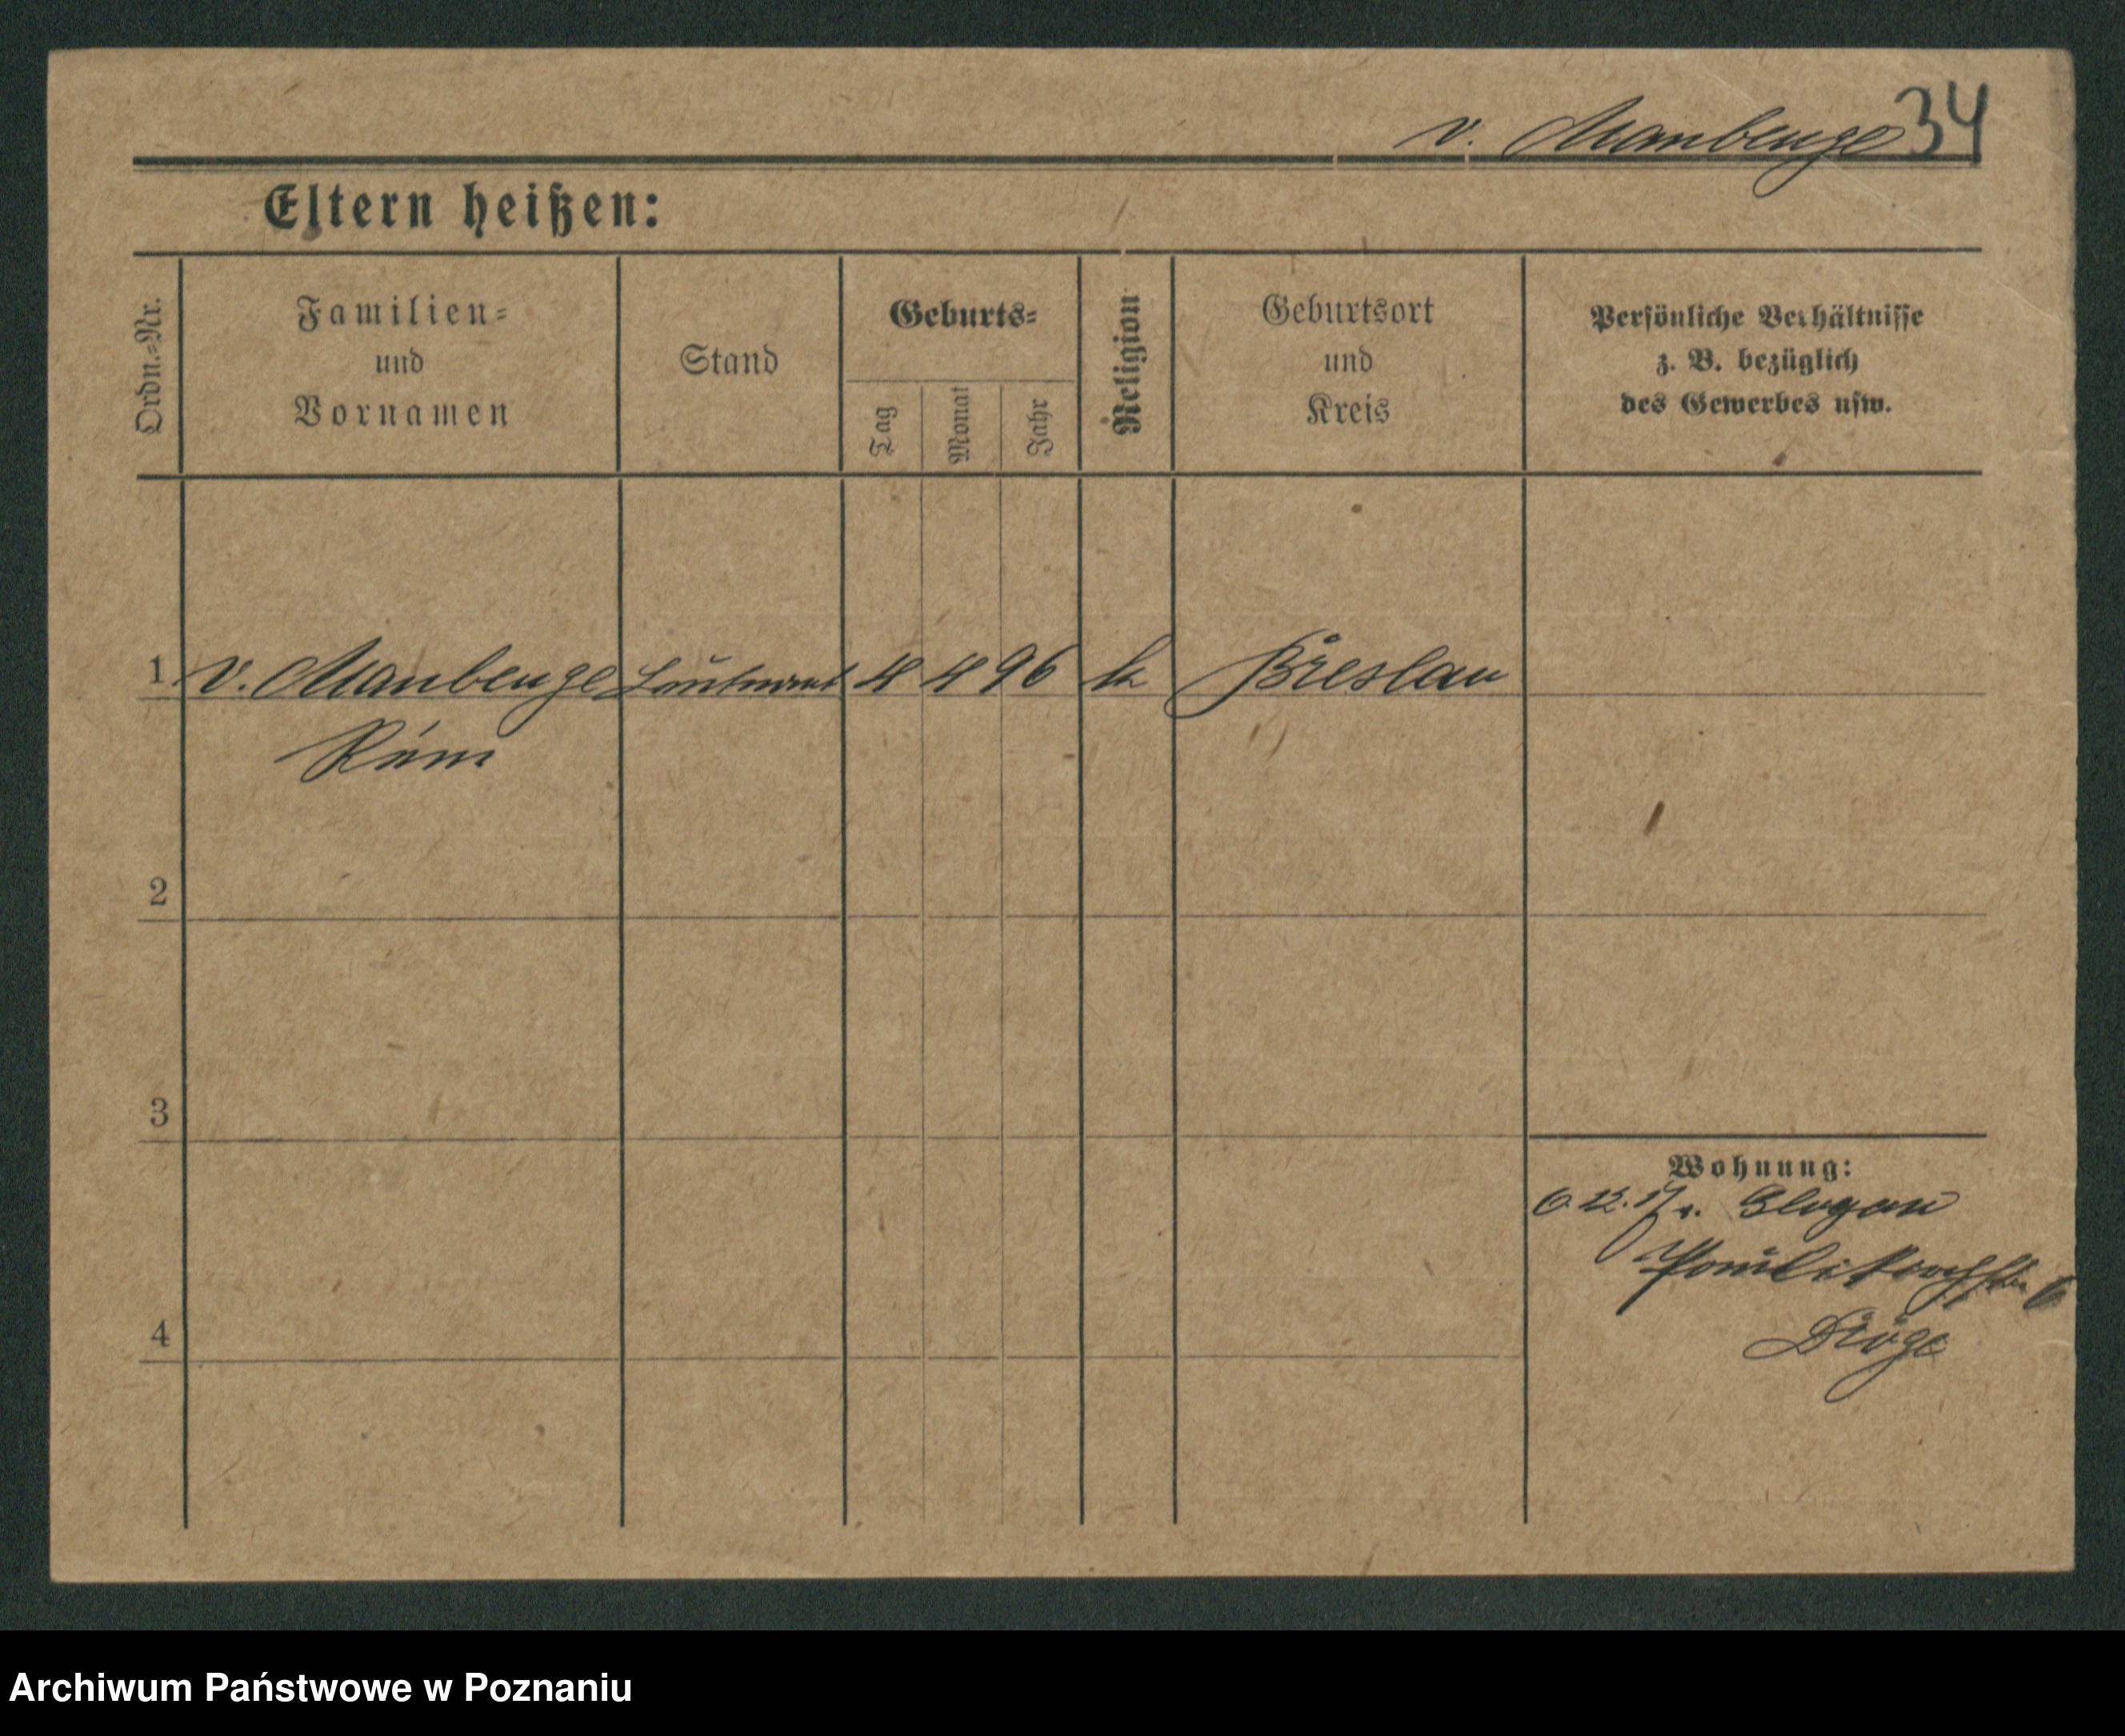 v. Maubeuge 34
Eltern heißen:
Ordn.-Nr.
Familien-
und
Vornamen
Stand
Geburts-
Tag
Monat
Jahr
Religion
Geburtsort
und
Kreis
Persönliche Verhältnisse
z. B. bezüglich
des Gewerbes usw.
1 v. Maubeuge Leutnant 4 4 96 k Breslau
Rém
2
3
Wohnung:
6. 12. 17 v. Glogau
Paulikirchstr. 6
4
Dröge
Archiwum Państwowe w Poznaniu